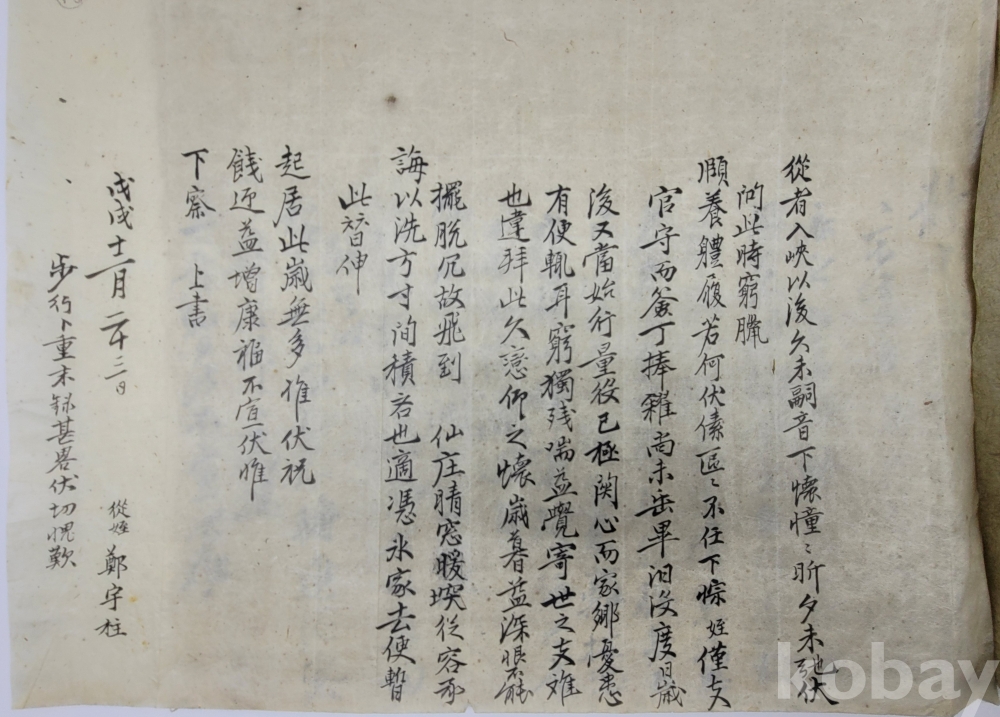 從者入峽以後久未嗣音下懷憧〻昕夕未弛也伏
問此時窮臘
頤養體履若何伏傃區〻不任下悰姪僅支
官守而簽丁捧糴尙未岳畢汨沒度日歲
後又當始行量役已極関心而家鄕憂患
有便輒耳窮獨殘喘益覺寄世之支难
也違拜此久戀仰之懷歲暮益深恨不能
擺脫冗故飛到 仙庄晴窓暖埃從容承
誨以洗方寸間積吝也適憑氷家去便暫
此替伸
起居此歲無多惟伏祝
餞迎益增康福不宣伏惟
下察 上書
戊戌十二月二十二日
從姪 鄭宇柱
步行卜重未錄甚畧伏切愧歎
kobay